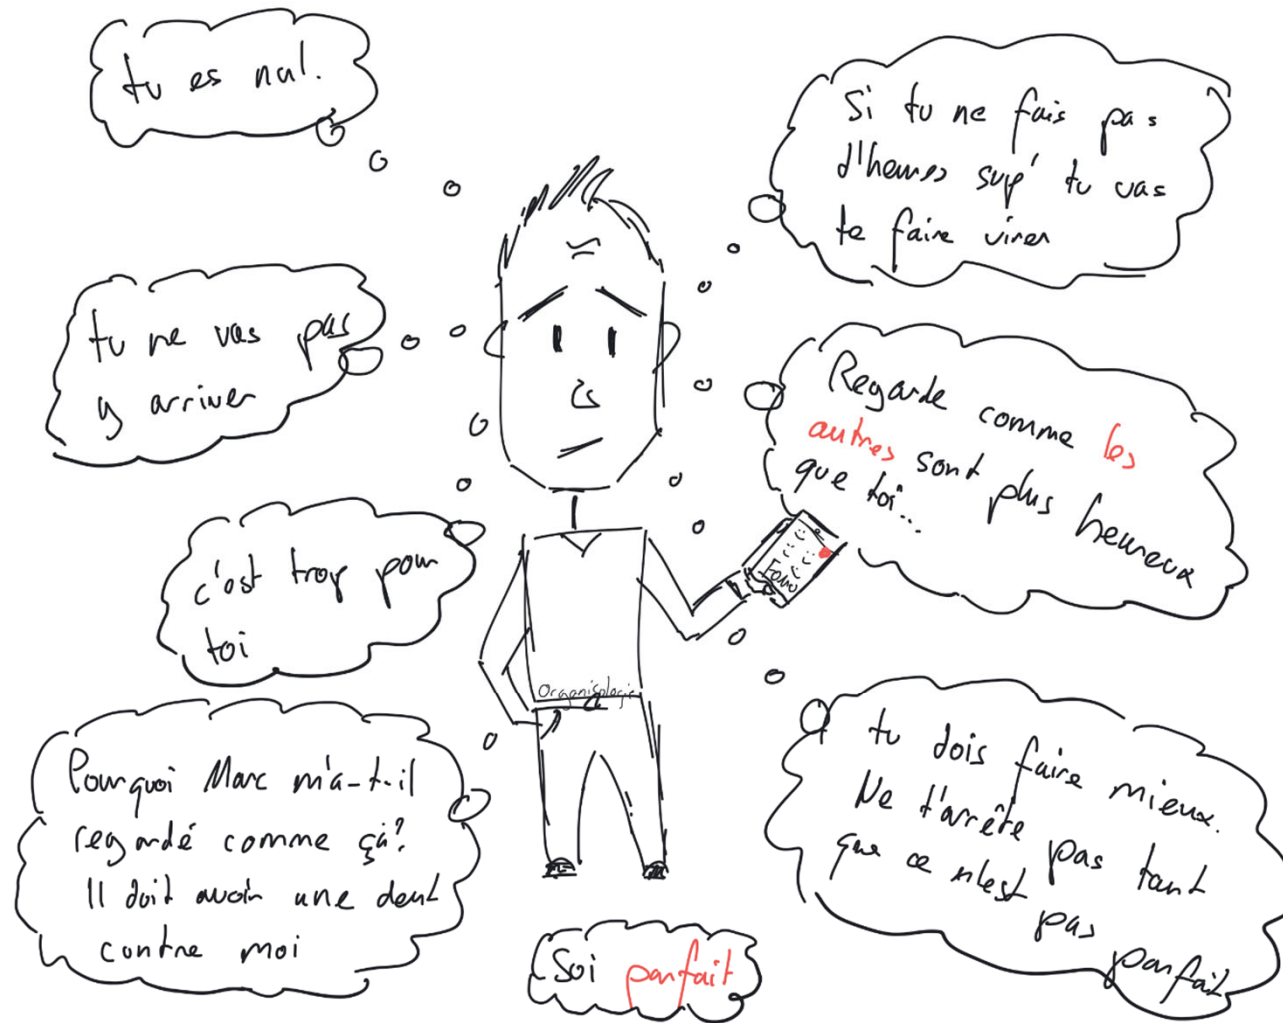 tu es nul.
Si tu ne fais pas
d'heures sup' tu vas
te faire virer
tu ne vas pas
y arriver
Regarde comme les
autres sont plus heureux
que toi...
Fomo
c'est trop pour
toi
Organisologie
Pourquoi Marc m'a-t-il
regardé comme ça?
Il doit avoir une dent
contre moi
tu dois faire mieux.
Ne t'arrête pas tant
que ce n'est pas
parfait
Soi parfait